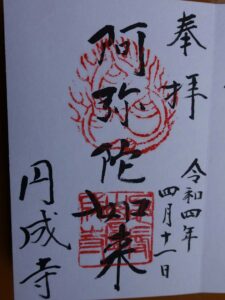 奉拝
令和四年
四月十一日
阿弥陀如来
円成寺